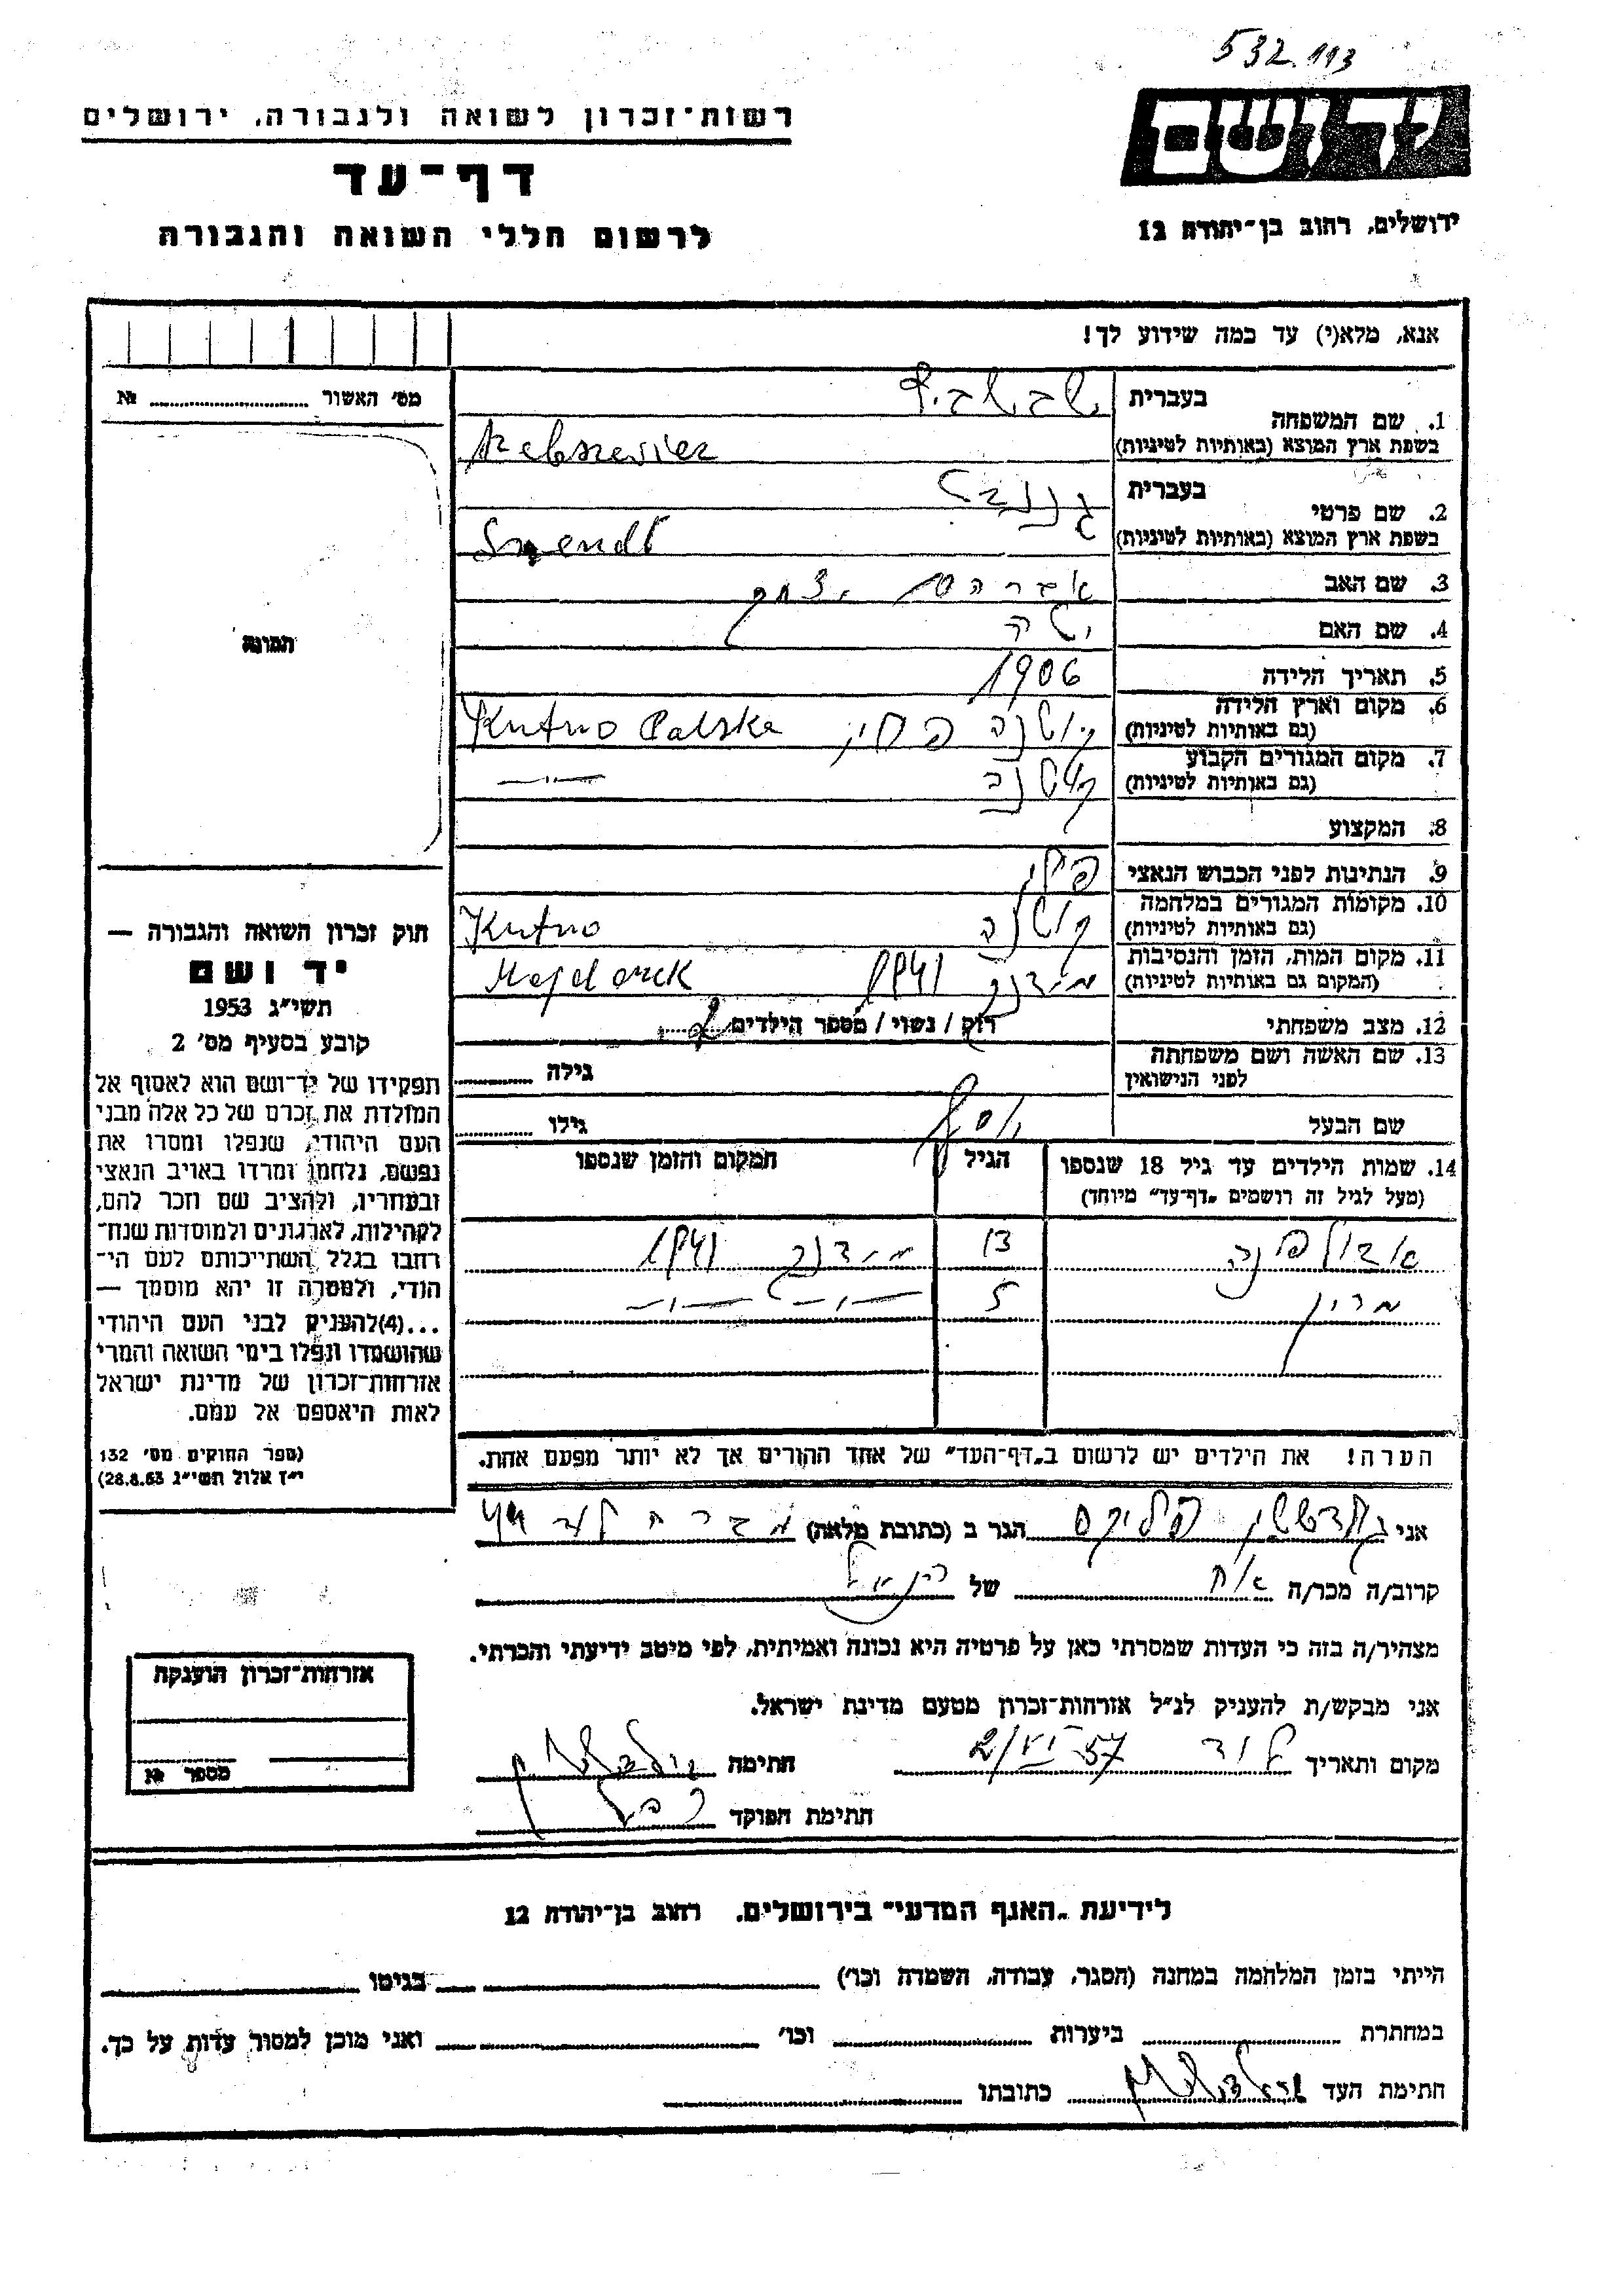 532.113
רשות־זכרון לשואה ולגבורה, ירושלים
דף־עד
לרשום חללי השואה והגבורה
ידושם
ירושלים, רחוב בן־יהודה 12
אנא, מלא(י) עד כמה שידוע לך!
מס׳ האשור № ........
תמונה
חוק זכרון השואה והגבורה —
יד ושם
תשי״ג 1953
קובע בסעיף מס׳ 2
תפקידו של יד־ושם הוא לאסוף אל
המולדת את זכרם של כל אלה מבני
העם היהודי, שנפלו ומסרו את
נפשם, נלחמו ומרדו באויב הנאצי
ובעוזריו, ולהציב שם וזכר להם,
לקהילות, לארגונים ולמוסדות שנח־
רבו בגלל השתייכותם לעם הי־
הודי, ולמטרה זו יהא מוסמך —
...(4)להעניק לבני העם היהודי
שהושמדו ונפלו בימי השואה והמרי
אזרחות־זכרון של מדינת ישראל
לאות היאספם אל עמם.
(ספר החוקים מס׳ 132
י״ז אלול תשי״ג 28.8.53)
בעברית
1. שם המשפחה
בשפת ארץ המוצא (באותיות לטיניות)
בעברית
2. שם פרטי
בשפת ארץ המוצא (באותיות לטיניות)
3. שם האב אברהם יצחק
4. שם האם
5. תאריך הלידה 1906
6. מקום וארץ הלידה
(גם באותיות לטיניות) קוטנה פולין Kutno Polska
7. מקום המגורים הקבוע
(גם באותיות לטיניות) קוטנה —״—
8. המקצוע
9. הנתינות לפני הכבוש הנאצי פולין
10. מקומות המגורים במלחמה
(גם באותיות לטיניות) קוטנה Kutno
11. מקום המות, הזמן והנסיבות
(המקום גם באותיות לטיניות) מיידנק 1941 Majdanek
12. מצב משפחתי רווק / נשוי / מספר הילדים 2
13. שם האשה ושם משפחתה
לפני הנישואין גילה ........
שם הבעל יוסף גילו ........
14. שמות הילדים עד גיל 18 שנספו הגיל המקום והזמן שנספו
(מעל לגיל זה רושמים „דף־עד״ מיוחד)
13 מיידנק 1941
5 —״— —״—
הערה! את הילדים יש לרשום ב„דף־העד״ של אחד ההורים אך לא יותר מפעם אחת.
אני גולדשטיין פליקס הגר ב (כתובת מלאה)
קרוב/ה מכר/ה של
מצהיר/ה בזה כי העדות שמסרתי כאן על פרטיה היא נכונה ואמיתית, לפי מיטב ידיעתי והכרתי.
אני מבקש/ת להעניק לנ״ל אזרחות־זכרון מטעם מדינת ישראל.
מקום ותאריך לוד 2/VI 57 חתימה
חתימת הפוקד
אזרחות־זכרון הוענקה
מספר №
לידיעת „האגף המדעי״ בירושלים. רחוב בן־יהודה 12
הייתי בזמן המלחמה במחנה (הסגר, עבודה, השמדה וכו׳) בגיטו
במחתרת ביערות וכו׳ ואני מוכן למסור עדות על כך.
חתימת העד כתובתו